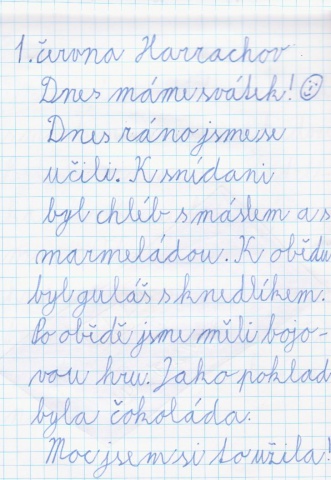 1. června Harrachov
Dnes máme svátek! ☺
Dnes ráno jsme se
učili. K snídani
byl chléb s máslem a s
marmeládou. K obědu
byl guláš s knedlíkem.
Po obědě jsme měli bojo-
vou hru. Jako poklad
byla čokoláda.
Moc jsem si to užila!